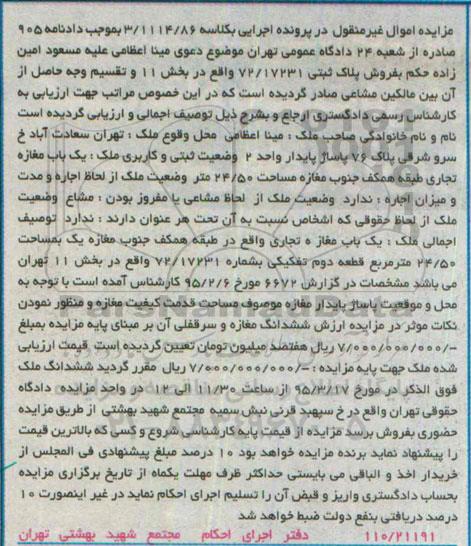 مزایده اموال غیرمنقول در پرونده اجرایی بکلاسه ۳/۱۱۱۴/۸۶ بموجب دادنامه ۹۰۵
صادره از شعبه ۲۴ دادگاه عمومی تهران موضوع دعوی مینا اعظامی علیه مسعود امین
زاده حکم بفروش پلاک ثبتی ۷۲/۱۷۲۳۱ واقع در بخش ۱۱ و تقسیم وجه حاصل از
آن بین مالکین مشاعی صادر گردیده است که در این خصوص مراتب جهت ارزیابی به
کارشناس رسمی دادگستری ارجاع و بشرح ذیل توصیف اجمالی و ارزیابی گردیده است
نام و نام خانوادگی صاحب ملک : مینا اعظامی محل وقوع ملک : تهران سعادت آباد خ
سرو شرقی پلاک ۷۶ پاساژ پایدار واحد ۲ وضعیت ثبتی و کاربری ملک : یک باب مغازه
تجاری طبقه همکف جنوب مغازه مساحت ۲۴/۵۰ متر وضعیت ملک از لحاظ اجاره و مدت
و میزان اجاره : ندارد وضعیت ملک از لحاظ مشاعی یا مفروز بودن : مشاع وضعیت
ملک از لحاظ حقوقی که اشخاص نسبت به آن تحت هر عنوان دارند : ندارد توصیف
اجمالی ملک : یک باب مغاز ه تجاری واقع در طبقه همکف جنوب مغازه یک بمساحت
۲۴/۵۰ مترمربع قطعه دوم تفکیکی بشماره ۷۲/۱۷۲۳۱ واقع در بخش ۱۱ تهران
می باشد مشخصات در گزارش ۶۶۷۲ مورخ ۹۵/۲/۶ کارشناس آمده است با توجه به
محل و موقعیت پاساژ پایدار مغازه موصوف مساحت قدمت کیفیت مغازه و منظور نمودن
نکات موثر در مزایده ارزش ششدانگ مغازه و سرقفلی آن بر مبنای پایه مزایده بمبلغ
-/۷/۰۰۰/۰۰۰/۰۰۰ ریال هفتصد میلیون تومان تعیین گردیده است قیمت ارزیابی
شده ملک جهت پایه مزایده : -/۷/۰۰۰/۰۰۰/۰۰۰ ریال مقرر گردید ششدانگ ملک
فوق الذکر در مورخ ۹۵/۳/۱۷ از ساعت ۱۱/۳۰ الی ۱۲ در واحد مزایده دادگاه
حقوقی تهران واقع در خ سپهبد قرنی نبش سمیه مجتمع شهید بهشتی از طریق مزایده
حضوری بفروش برسد مزایده از قیمت پایه کارشناسی شروع و کسی که بالاترین قیمت
را پیشنهاد نماید برنده مزایده خواهد بود ۱۰ درصد مبلغ پیشنهادی فی المجلس از
خریدار اخذ و الباقی می بایستی حداکثر ظرف مهلت یکماه از تاریخ برگزاری مزایده
بحساب دادگستری واریز و قبض آن را تسلیم اجرای احکام نماید در غیر اینصورت ۱۰
درصد دریافتی بنفع دولت ضبط خواهد شد
۱۱۰/۲۱۱۹۱ دفتر اجرای احکام مجتمع شهید بهشتی تهران